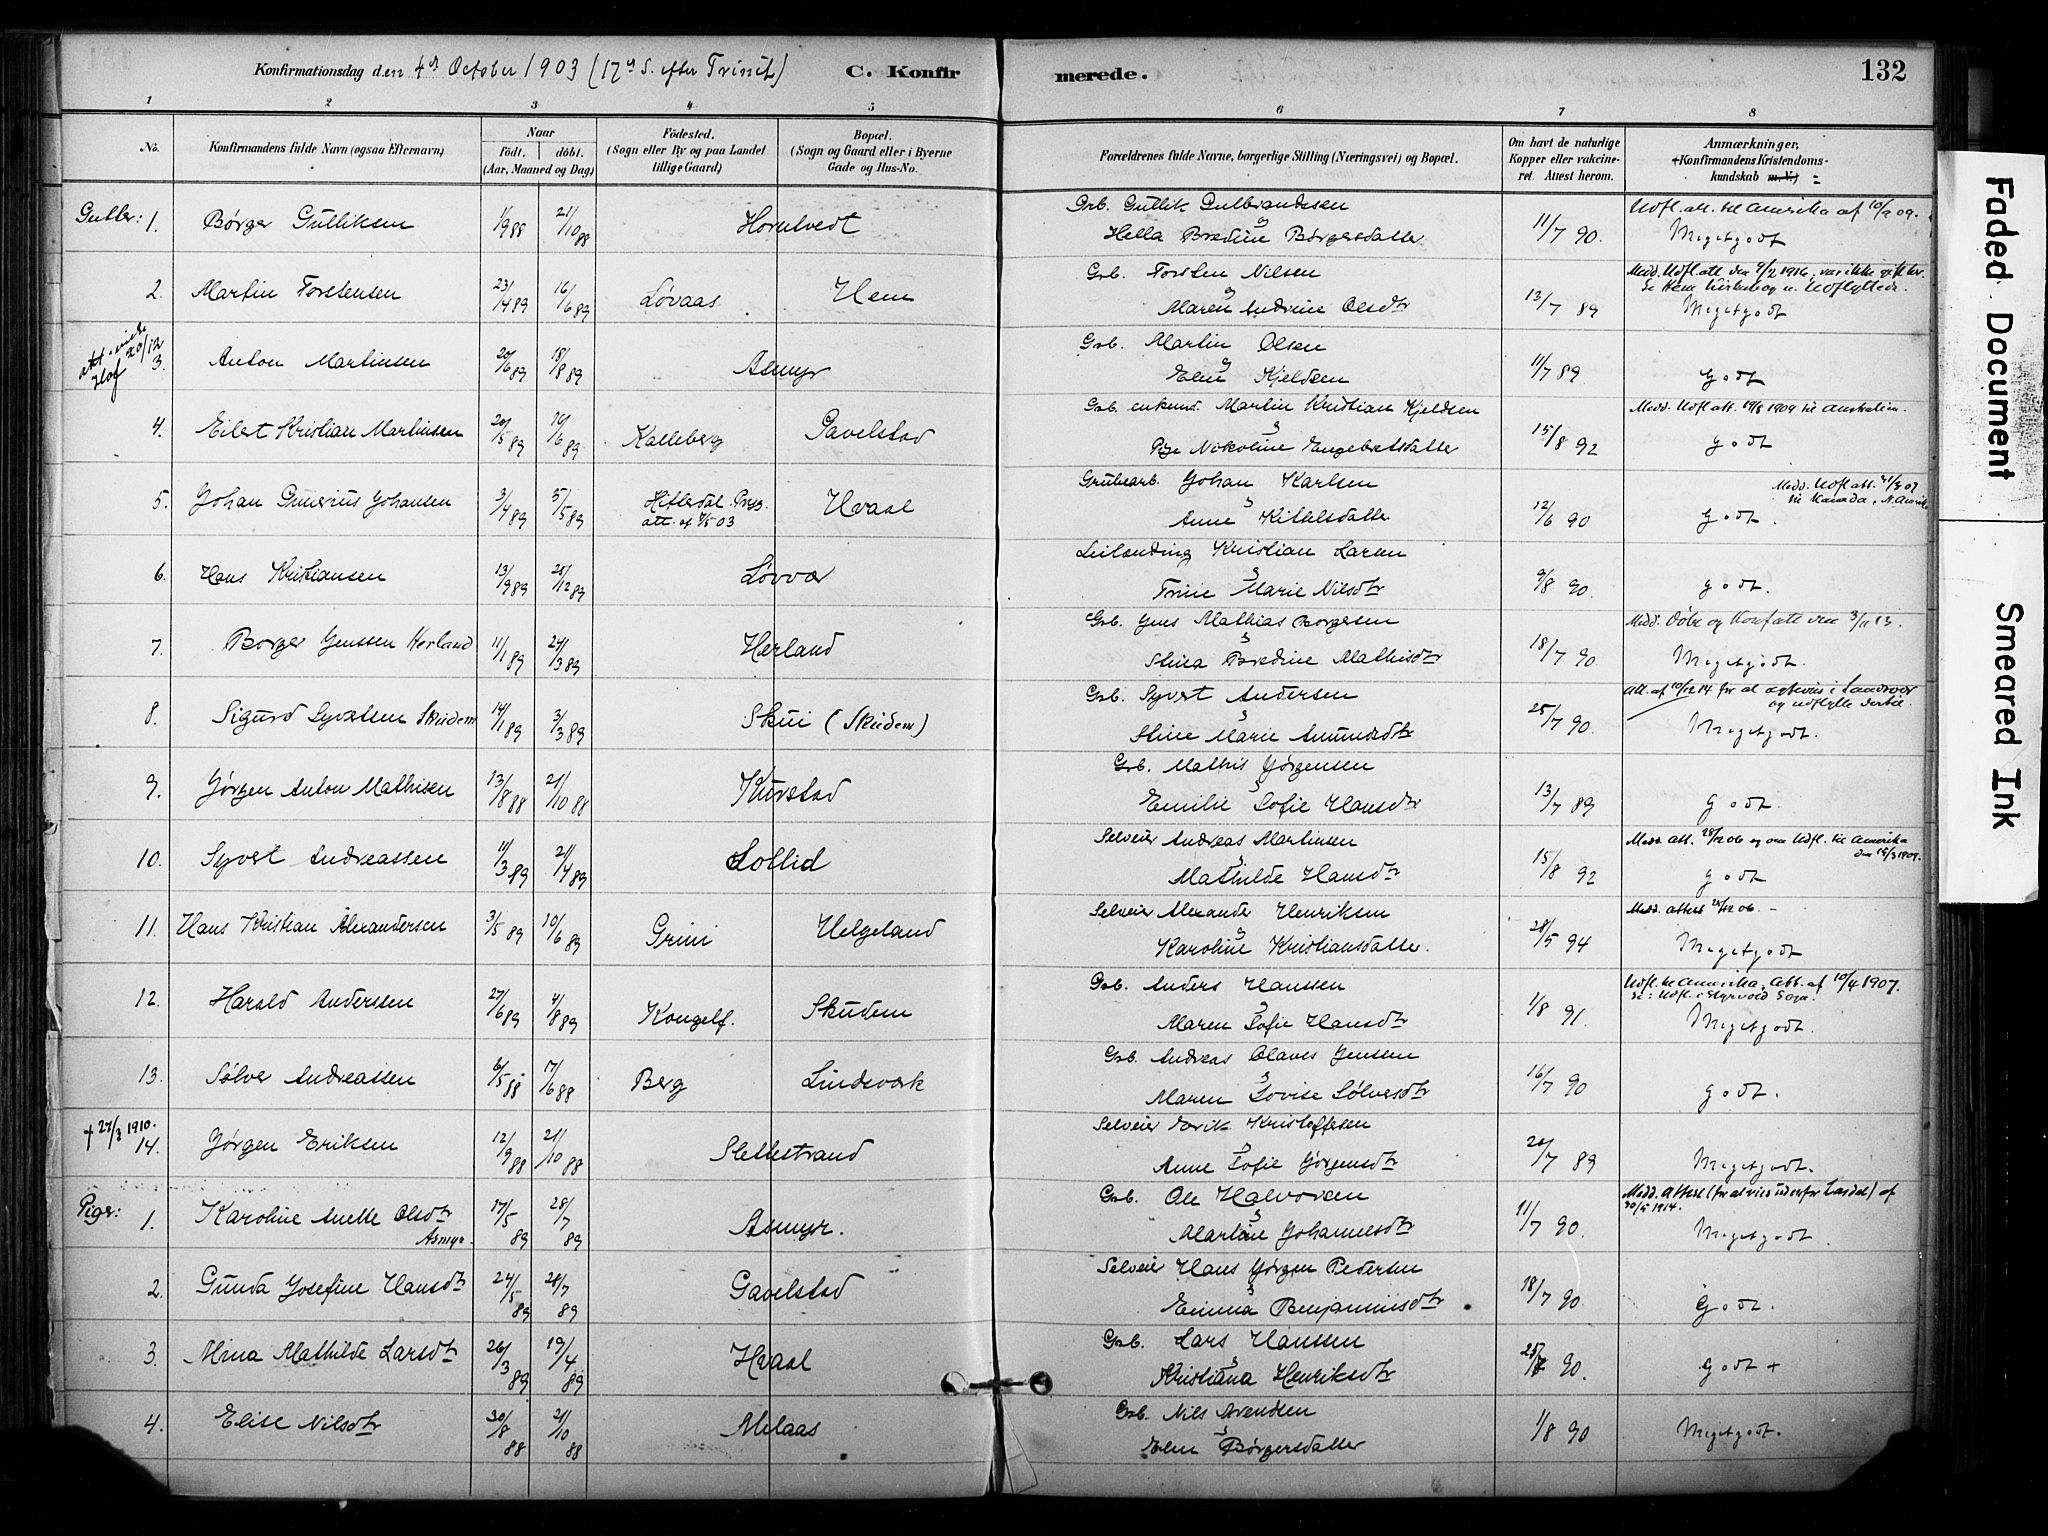 Konfirmationsdag den 4de October 1903 (17de S. efter Trinit)
C. Konfir
merede.
132
1 2 3 4 5 6 7 8
No.
Konfirmandens fulde Navn (ogsaa Efternavn)
Naar
født. døbt.
(Aar, Maaned og Dag)
Födested.
(Sogn eller By og paa Landet
tillige Gaard)
Bopæl.
(Sogn og Gaard eller i Byerne
Gade og Hus-No.
Forældrenes fulde Navne, borgerlige Stilling (Næringsvei) og Bopæl.
Om havt de naturlige
Kopper eller vakcine-
ret. Attest herom.
Anmærkninger,
+Konfirmandens Kristendoms-
kundskab m. V.) =
Faded Document
Smeared Ink
Gutter: 1. Børger Gulliksen 1/9 88 21/10 88 Horntvedt
Grb. Gullik Gulbrandsen
og
Hella Bredine Børgersdatter 11/7 90.
Udfl. att. til Amerika af 10/2 09.
Megetgodt
2. Martin Torstensen 23/4 89 16/6 89 Løvaas Hem
Grb. Torsten Nilsen
og
Maren Andrine Olsdtr 13/7 89
Medd. Udfl. att den 9/2 1916, var ikke gift her.
Se Hem Kirkebog u. Udflyttede.
Megetgodt
att. vielse 20/12 Hof
3. Anton Martinsen 20/6 89 18/8 89 Asmyr
Grb. Martin Olsen
og
Elen Kjeldsen 11/7 89
godt
4. Eilert Kristian Martinsen 20/5 89 10/6 89 Kalleberg Gavelstad
Grb. enkemd. Martin Kristian Kjeldsen
Pige Nikoline Engebretsdatter 15/8 92
Medd. Udfl att. 19/8 1909 til Australien.
godt
5. Johan Gunerius Johansen 3/4 89 5/5 89 Hitterdal Prgj. Hvaal
att. af 7/5 03
Grubearb. Johan Karlsen
Anne Kittelsdatter 12/6 90
Medd. Udfl att.
til Kanada, N. Amerika
godt.
6. Hans Kristiansen 13/9 89 25/12 89 Løvvar
Leilending Kristian Larsen
Trine Marie Nilsdtr 9/8 90.
godt.
7. Borger Jenssen Herland 11/1 89 24/3 89 Herland
Grb. Jens Mathias Borgersen
Stina Bredine Mathisdtr 18/7 90
Medd. Døbe og Konf att den 3/11 13.
Megetgodt.
8. Sigurd Syvertsen Skudem 14/1 89 3/3 89 Skui (Skudem)
Grb. Syvert Andersen
Stine Marie Amundsdtr 25/7 90.
Att. af 10/12 14 for at ægtevies i Sandsvær
og udflytte dertil.
Megetgodt.
9. Jørgen Anton Mathisen 13/8 88 21/10 88 Kurstad
Grb. Mathis Jørgensen
Emilie Sofie Hansdtr 13/7 89
godt.
10. Syvert Andreassen 11/3 89 21/4 89 Sollid
Selveier Andreas Martinsen
Mathilde Hansdtr 15/8 92
Medd. att. 28/12 06 og om Udfl. til Amerika
den 15/3 1909.
godt
11. Hans Kristian Alexandersen 3/5 89 10/6 89 Grini Helgeland
Selveier Alexander Henriksen
og
Karoline Kristiansdatter. 28/5 94
Medd. attest 28/12 06. -
Megetgodt
12. Harald Andersen 27/6 89 4/8 89 Kongelf. Skudem
Grb. Anders Hanssen
Maren Sofie Hansdtr 1/8 91.
Udfl. til Amerika, Att. af 10/4 1907.
Se: Udfl. i Styrvold Sogn.
Megetgodt.
13. Sølver Andreassen 6/5 88 17/6 88 Berg Lindsværk
Grb. Andreas Olaves Jensen
Maren Lovise Sølvesdtr 16/7 90
godt.
+ 27/3 1910.
14. Jørgen Eriksen 12/9 88 21/10 88 Slettestrand
Selveier Erik Kristoffersen
Anne Sofie Jørgensdtr 20/7 89
Megetgodt.
Piger: 1. Karoline Anette Olsdtr 17/5 89 28/7 89 Asmyr.
Asmyr.
Grb. Ole Halvorsen
Martine Johannesdtr 11/7 90.
Medd. Attest (for at vies udenfor Landet) af
30/5 1914.
Megetgodt.
2. Gunda Josefine Hansdtr 24/5 89 28/7 89 Gavelstad
Selveier Hans Jørgen Pedersen
Emma Benjaminsdtr 18/7 90.
Godt.
3. Mina Mathilde Larsdtr 26/3 89 19/4 89 Hvaal
Grb. Lars Hanssen
Kristiana Henriksdtr 25/7 90.
Godt +
4. Elise Nilsdtr 30/8 88 21/10 88 Melaas
Grb. Nils Arendsen
Elen Børgersdatter 1/8 90
Megetgodt.